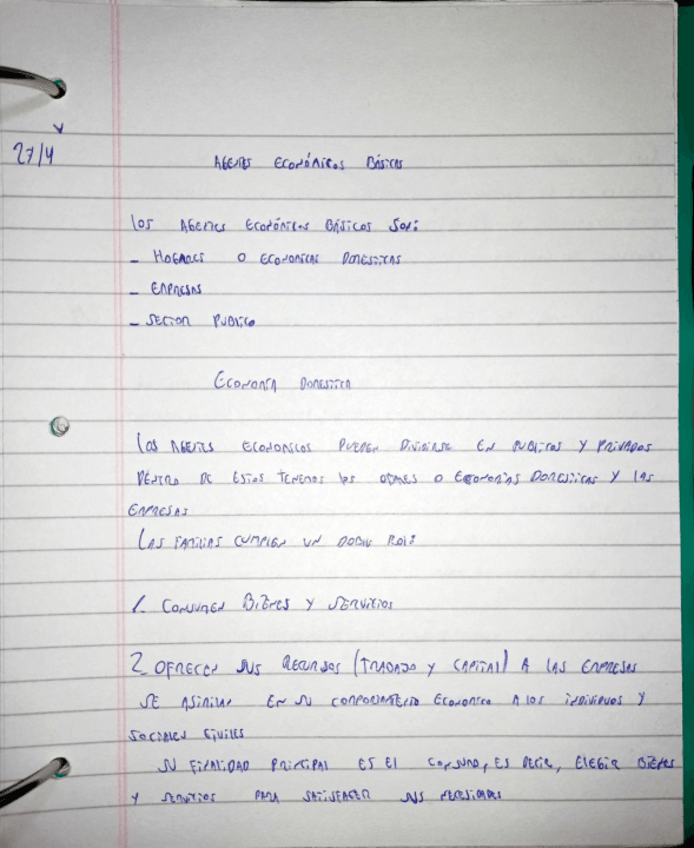 27/4
Agentes Económicos Básicos
los Agentes Económicos Básicos son:
- Hogares o economicas Domesticas
- Empresas
- Sector Publico
Economia Domestica
Los Agentes economicos pueden Dividirse en publicos y privados
Dentro de estos tenemos los ogares o Economias Domesticas y las
Empresas
Las familias cumplen un doble Rol:
1. Consumen Bienes y servicios
2 Ofrecen sus Recursos (Trabajo y capital) a las empresas
se asimilan en su comportamiento economico a los individuos y
sociales civiles
su finalidad principal es el consumo, es decir, elegir bienes
y servicios para satisfacer sus necesidades